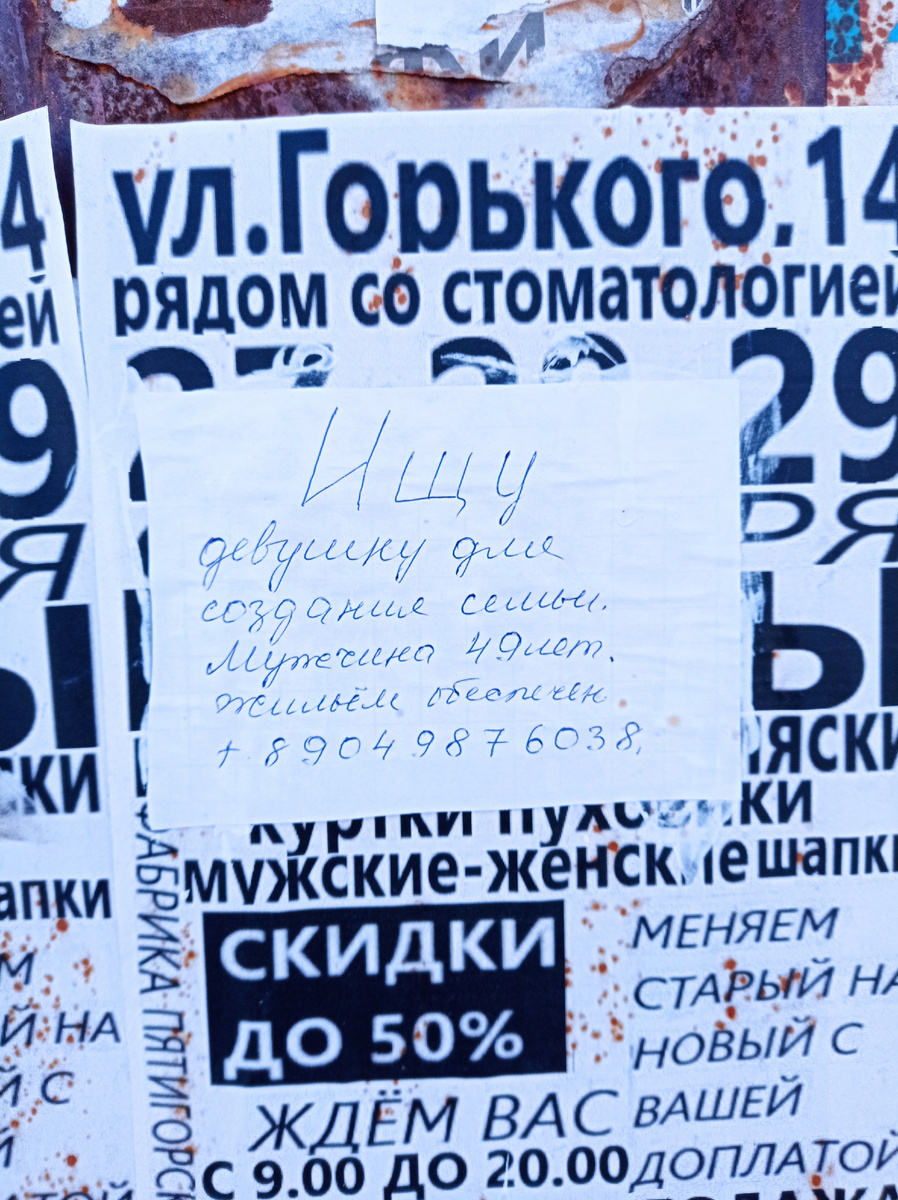 ул.Горького,14
рядом со стоматологией
29
Ищу
девушку для
создания семьи.
Мужчина 49 лет.
жильём обеспечен
+ 89049876038.
куртки
мужские-женские шапки
ФАБРИКА ПЯТИГОРСК
СКИДКИ
ДО 50%
ЖДЁМ ВАС
С 9.00 ДО 20.00
МЕНЯЕМ
СТАРЫЙ НА
НОВЫЙ С
ВАШЕЙ
ДОПЛАТОЙ